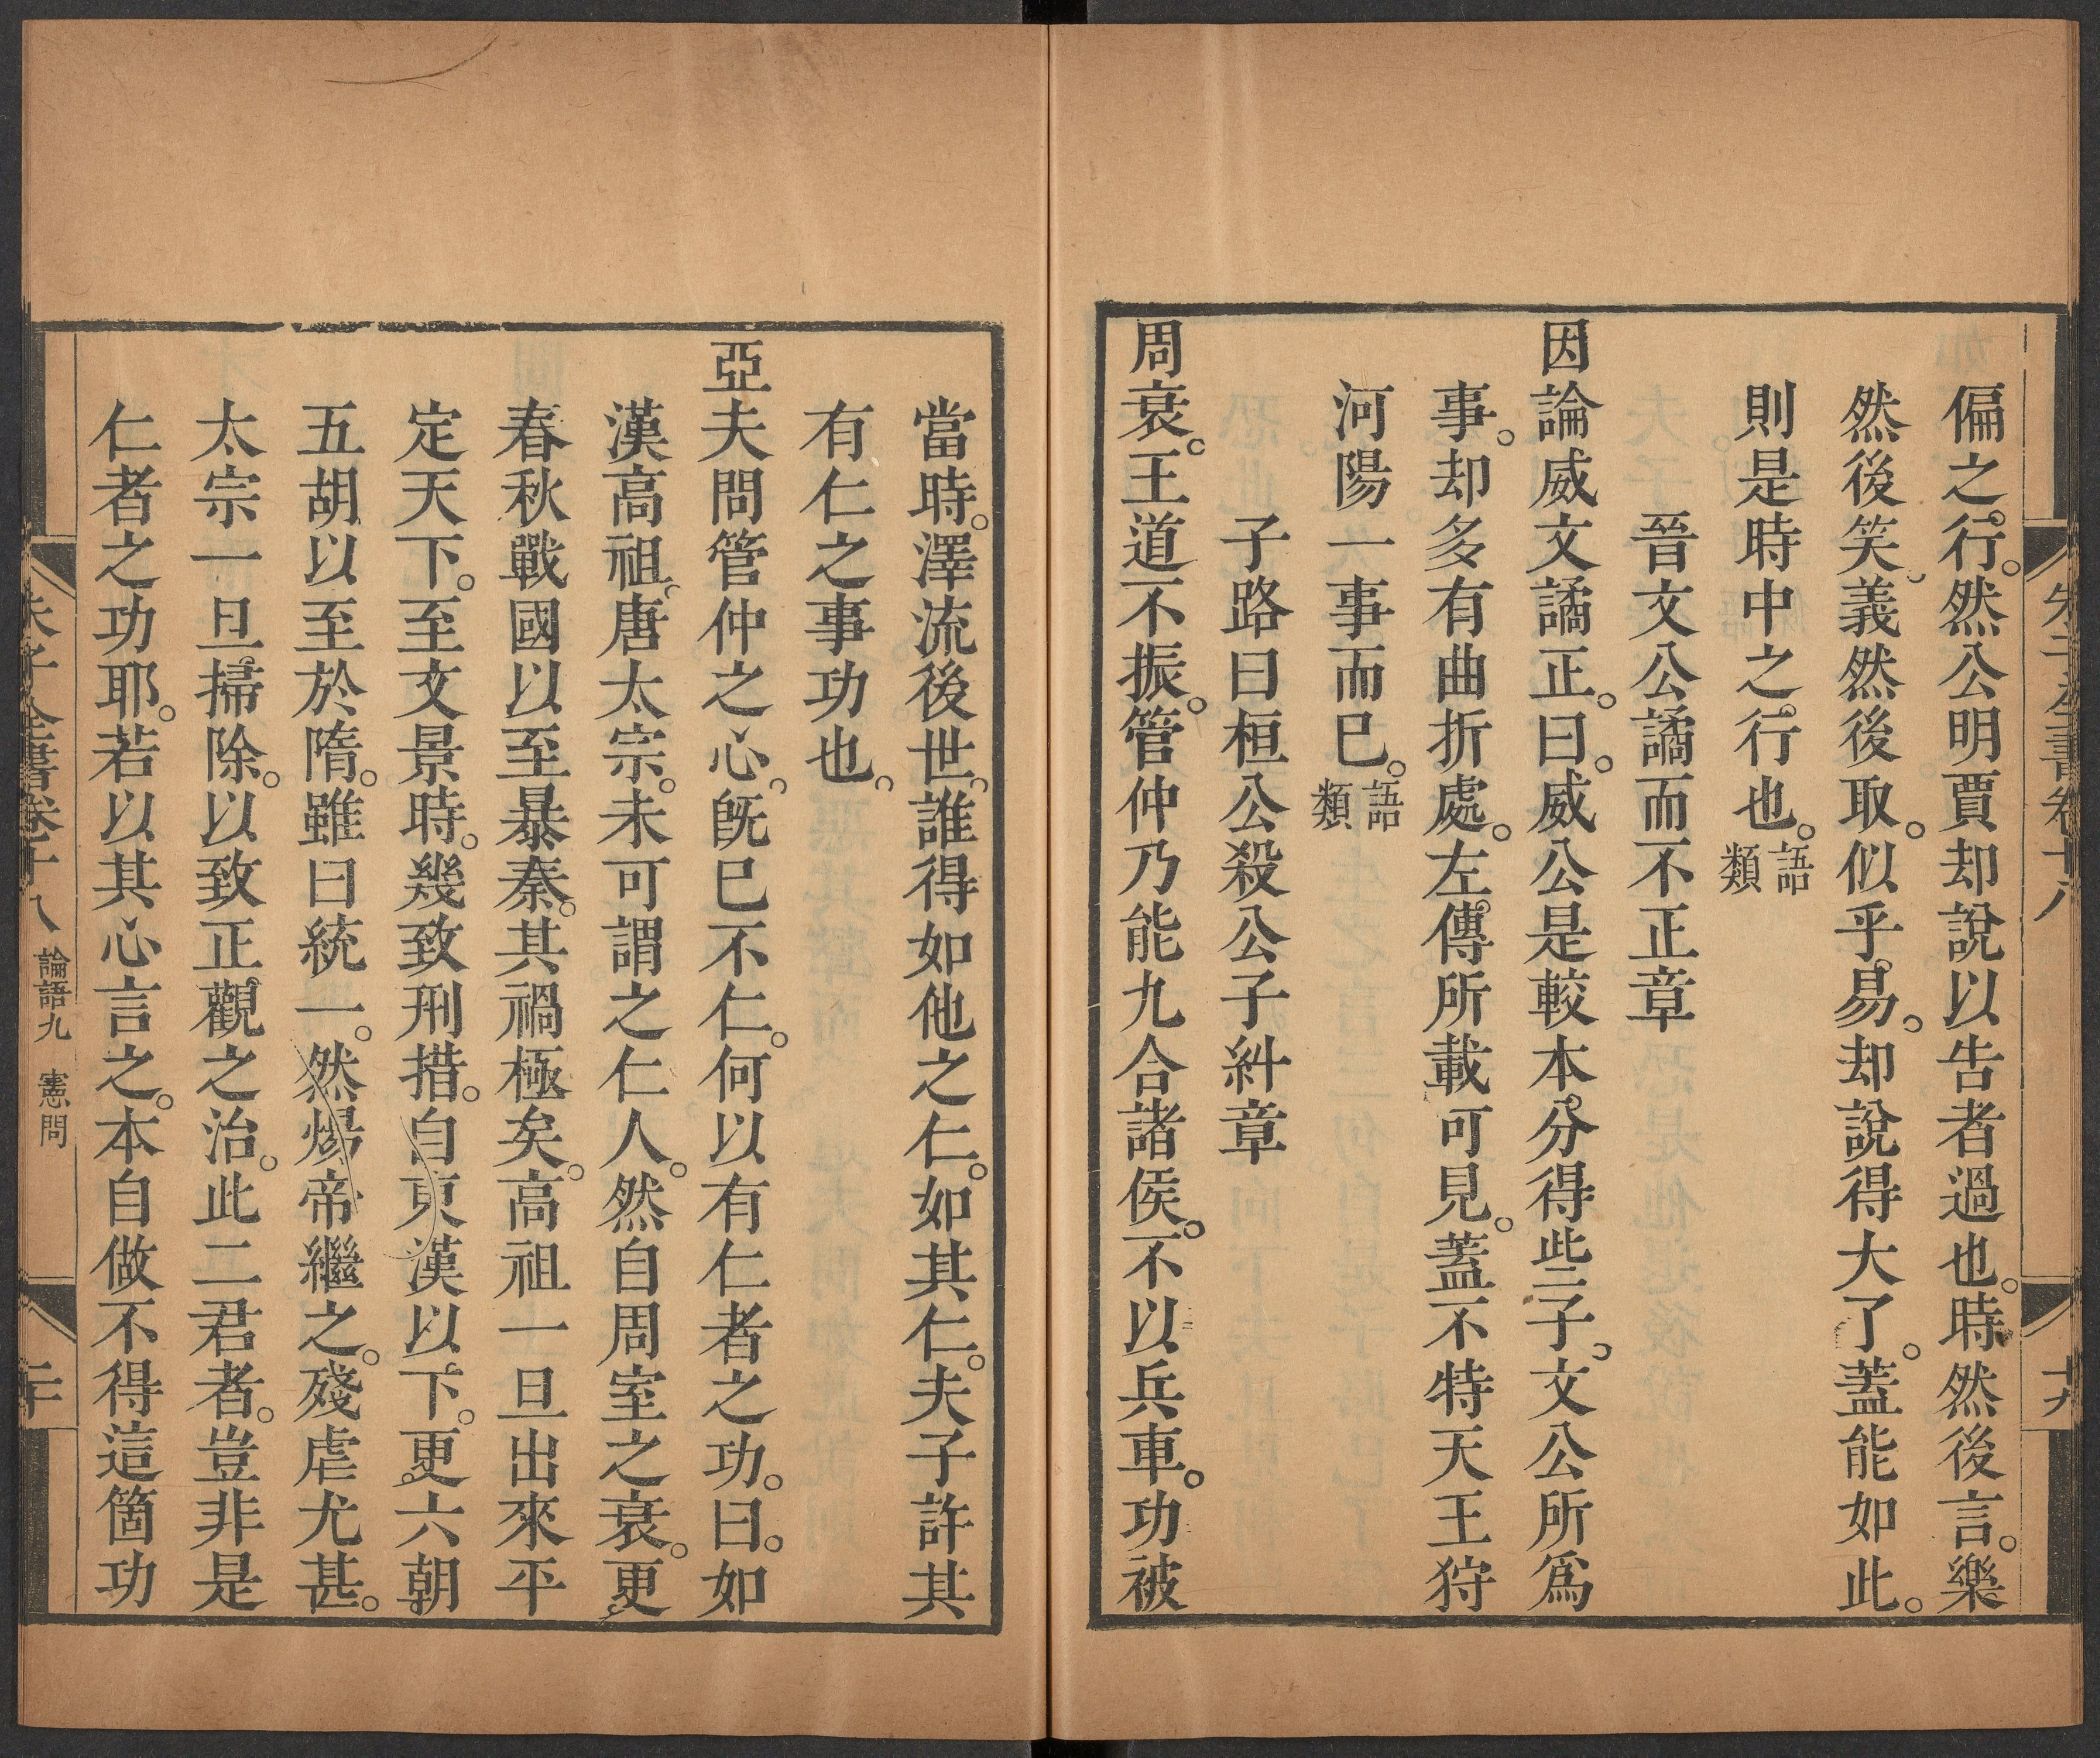 偏之行。然公明賈却說以告者過也。時然後言。樂
然後笑、義然後取。似乎易。却說得大了。蓋能如此。
則是時中之行也。語類
晉文公譎而不正章
因論威文譎正。曰。威公是較本分得些子。文公所爲
事。却多有曲折處。左傳所載可見。蓋不特天王狩
河陽一事而已。語類
子路曰桓公殺公子糾章
周衰。王道不振。管仲乃能九合諸侯。不以兵車。功被
當時。澤流後世。誰得如他之仁。如其仁。夫子許其
有仁之事功也。
亞夫問管仲之心。旣已不仁。何以有仁者之功。曰。如
漢高祖、唐太宗。未可謂之仁人。然自周室之衰。更
春秋戰國以至暴秦。其禍極矣。高祖一旦出來平
定天下。至文景時。幾致刑措。自東漢以下。更六朝
五胡以至於隋。雖曰統一。然煬帝繼之。殘虐尤甚。
太宗一旦掃除。以致正觀之治。此二君者。豈非是
仁者之功耶。若以其心言之。本自做不得這箇功
朱子全書卷十八 論語九 憲問 二十